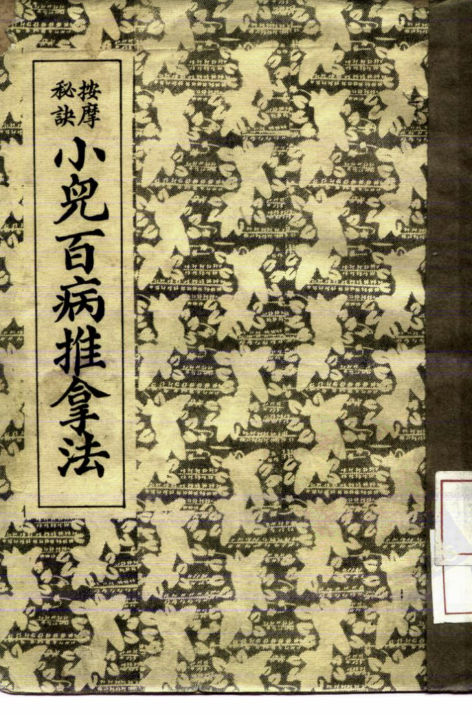 按摩
秘訣
小兒百病推拿法